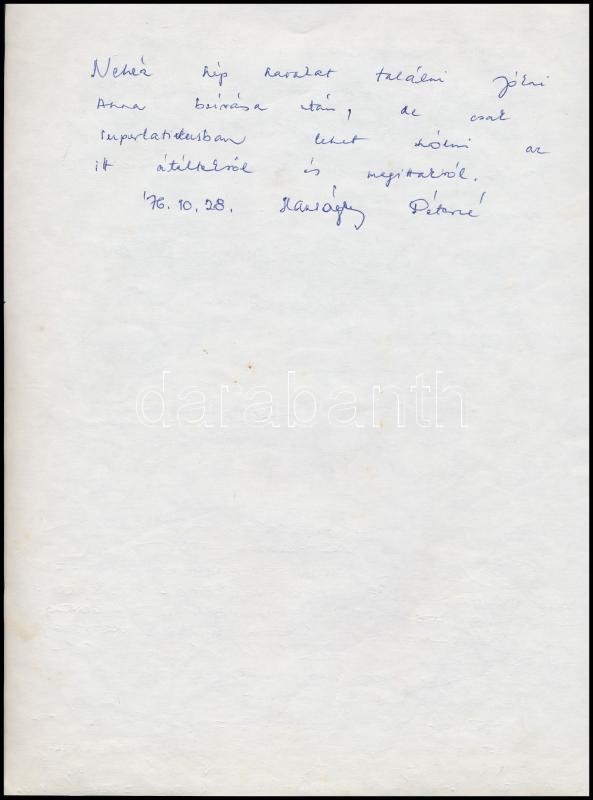 Nehéz szép szavakat találni Jókai
Anna beírása után, de csak
superlativusban lehet szólni az
itt átéltekről és megittakról.
'76.10.28. Péterné
darabanth